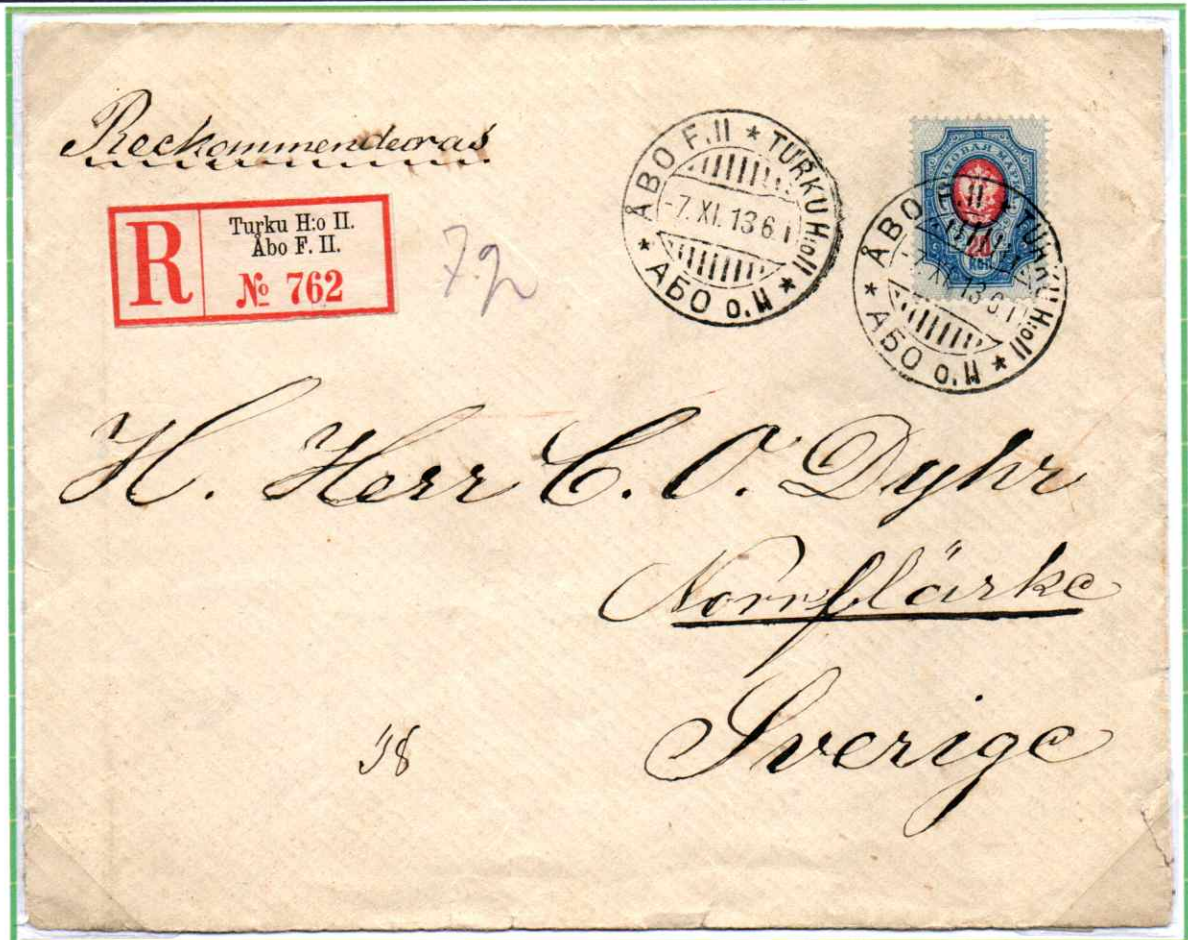 Reckommenderas
R
Turku H:o II.
Åbo F. II.
№ 762
ÅBO F.II * TURKU H:o II * АБО о.II *
-7.XI.13 6 I
ПОЧТОВАЯ МАРКА
20
КОП
ÅBO F.II * TURKU H:o II * АБО о.II *
XI.13 6 I
H. Herr C. O. Dyhr
Norrflärke
Sverige